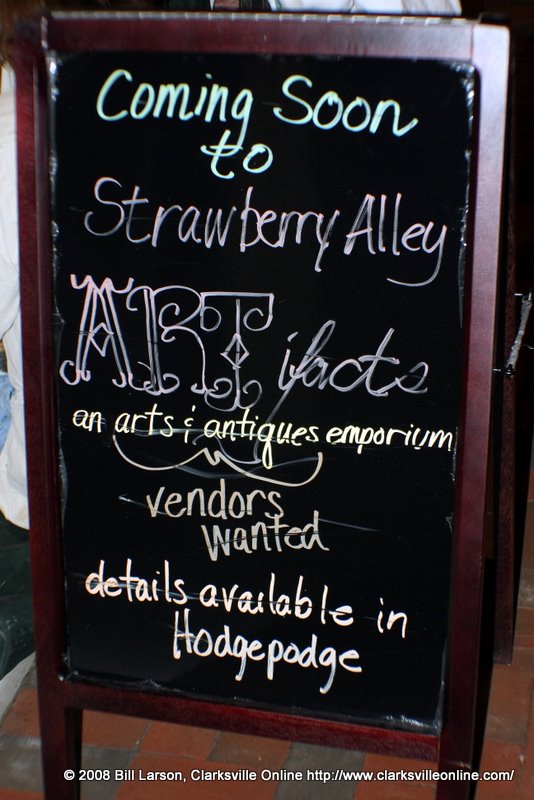 Coming Soon
to
Strawberry Alley
ARTifacts
an arts & antiques emporium
vendors
wanted
details available in
Hodgepodge
© 2008 Bill Larson, Clarksville Online http://www.clarksvilleonline.com/